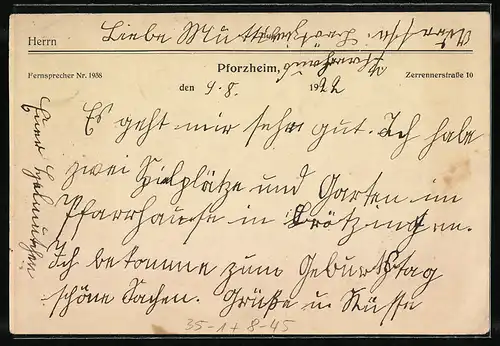 Herrn Liebe Mutti
Pforzheim,
Fernsprecher Nr. 1988
Zerrennerstraße 10
den 9. 8. 1922
Es geht mir sehr gut. Ich habe
zwei Spielplätze und Garten im
Pfarrhause in Brötzingen.
Ich bekomme zum Geburtstag
schöne Sachen. Grüße u Küsse
Euer
35-1+8-45